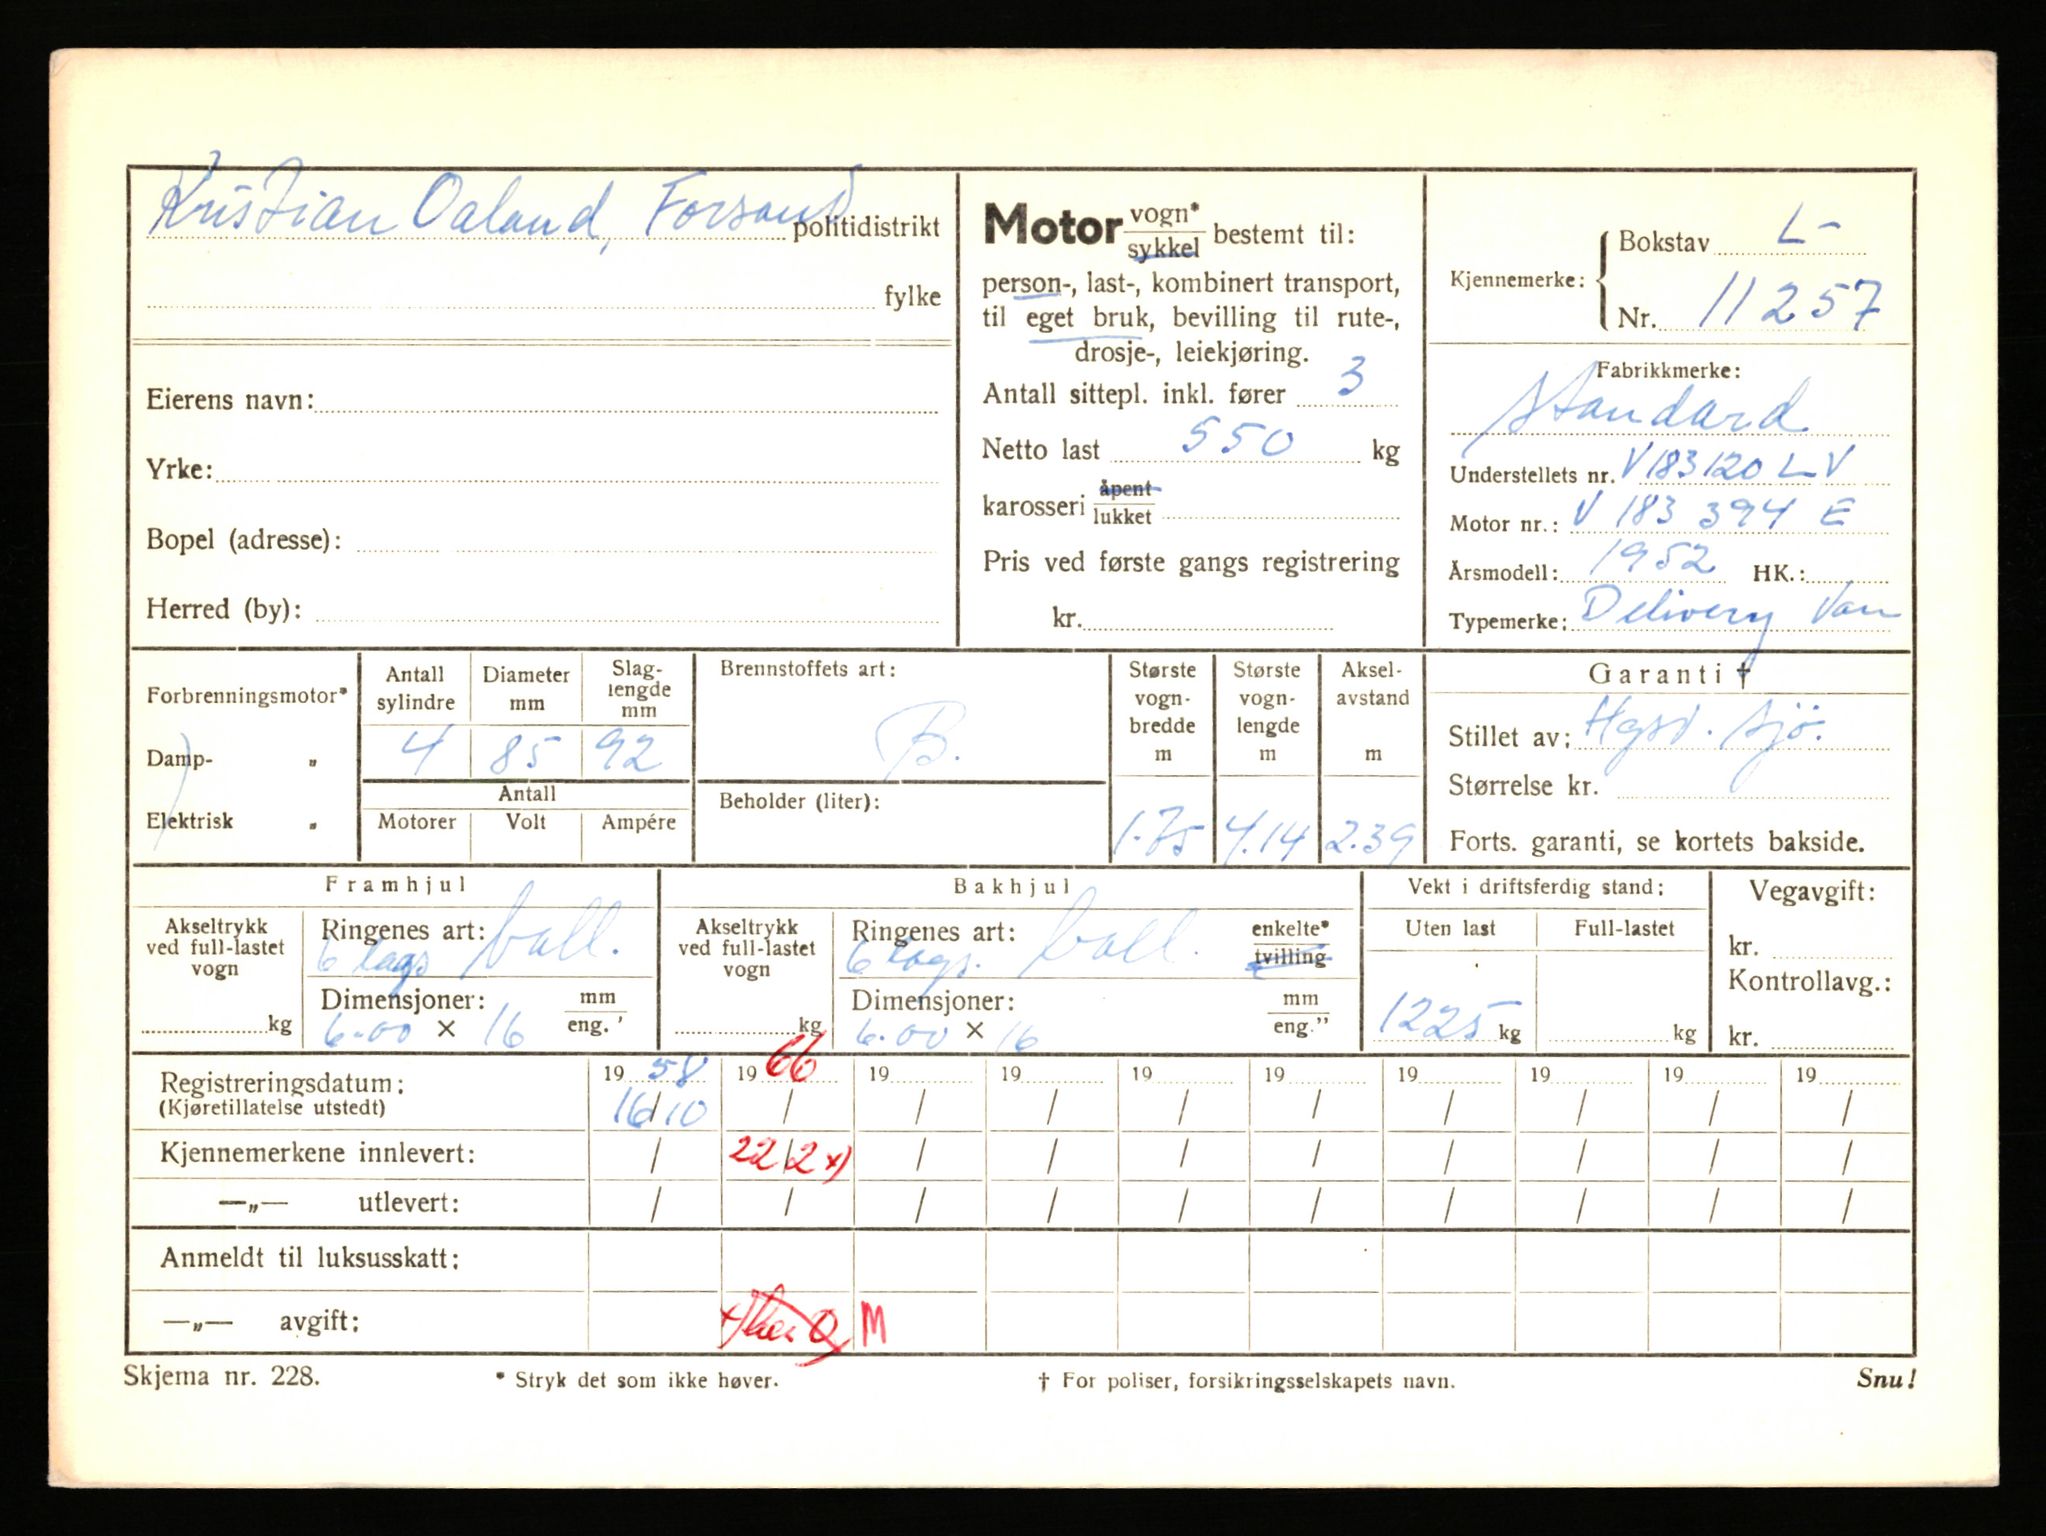 Kristian Oaland, Forsand politidistrikt
fylke
Eierens navn:
Yrke:
Bopel (adresse):
Herred (by):
Motor vogn* sykkel bestemt til:
person-, last-, kombinert transport,
til eget bruk, bevilling til rute-,
drosje-, leiekjøring.
Antall sittepl. inkl. fører 3
Netto last 550 kg
karosseri åpent lukket
Pris ved første gangs registrering
kr.
Kjennemerke: Bokstav L-
Nr. 11257
Fabrikkmerke:
Standard
Understellets nr. V183120LV
Motor nr.: V 183 394 E
Årsmodell: 1952 HK.:
Typemerke: Delivery Van
Forbrenningsmotor*
Damp- "
Elektrisk "
Antall sylindre Diameter mm Slag-lengde mm
4 85 92
Antall
Motorer Volt Ampére
Brennstoffets art:
B.
Beholder (liter):
Største vogn-bredde m Største vogn-lengde m Aksel-avstand m
1.75 4.14 2.39
Garanti †
Stillet av: Hgsd. Sjø.
Størrelse kr.
Forts. garanti, se kortets bakside.
Framhjul
Akseltrykk ved full-lastet vogn
kg
Ringenes art: ball.
6 lags
Dimensjoner: mm eng. '
6.00 × 16
Bakhjul
Akseltrykk ved full-lastet vogn
kg
Ringenes art: ball. enkelte* tvilling
6 lags.
Dimensjoner: mm eng."
6.00 × 16
Vekt i driftsferdig stand:
Uten last Full-lastet
1225 kg kg
Vegavgift:
kr.
Kontrollavg.:
kr.
Registreringsdatum: 19 58 19 66 19 19 19 19 19 19 19 19
(Kjøretillatelse utstedt) 16/10 / / / / / / / / /
Kjennemerkene innlevert: / 22/2 x) / / / / / / / /
—„— utlevert: / / / / / / / / / /
Anmeldt til luksusskatt:
—„— avgift: M
Skjema nr. 228. * Stryk det som ikke høver. † For poliser, forsikringsselskapets navn. Snu!